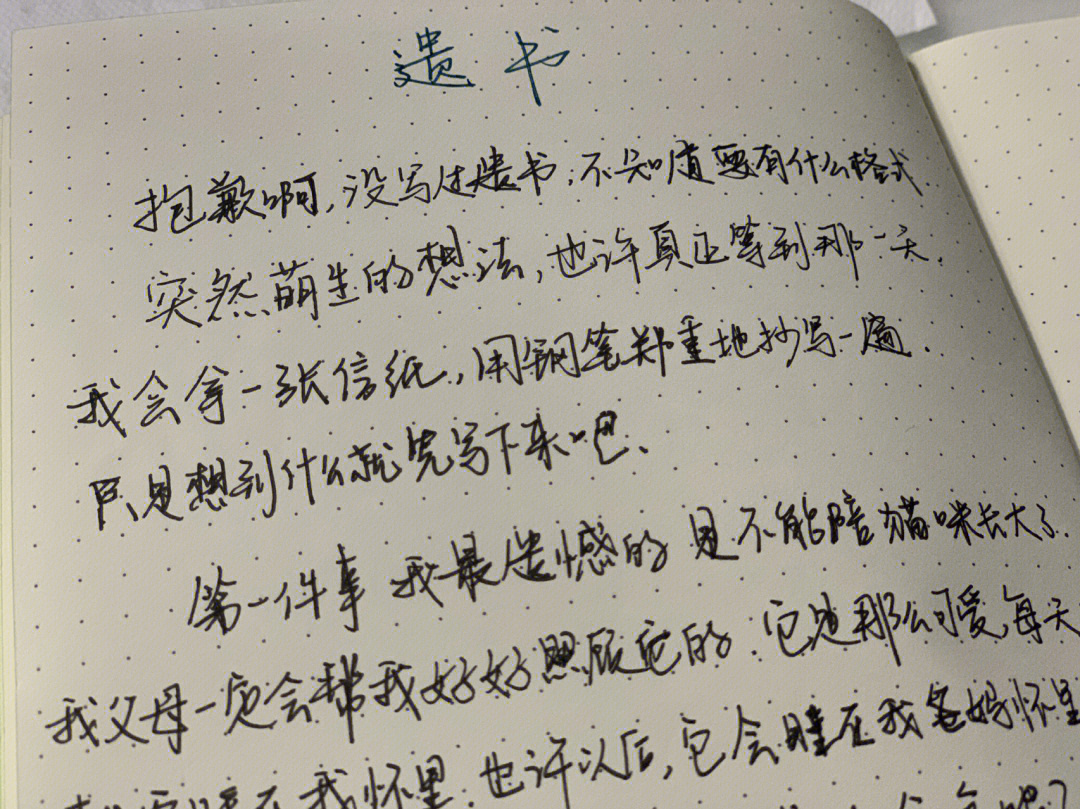 遗书
抱歉啊,没写过遗书,不知道要有什么格式
突然萌生的想法,也许真正等到那一天.
我会拿一张信纸,用钢笔郑重地抄写一遍.
只是想到什么就先写下来吧、
第一件事 我最遗憾的是不能陪猫咪长大了.
我父母一定会帮我好好照顾它的.它是那么可爱,每天
我怀里.也许以后,它会睡在我爸妈怀里